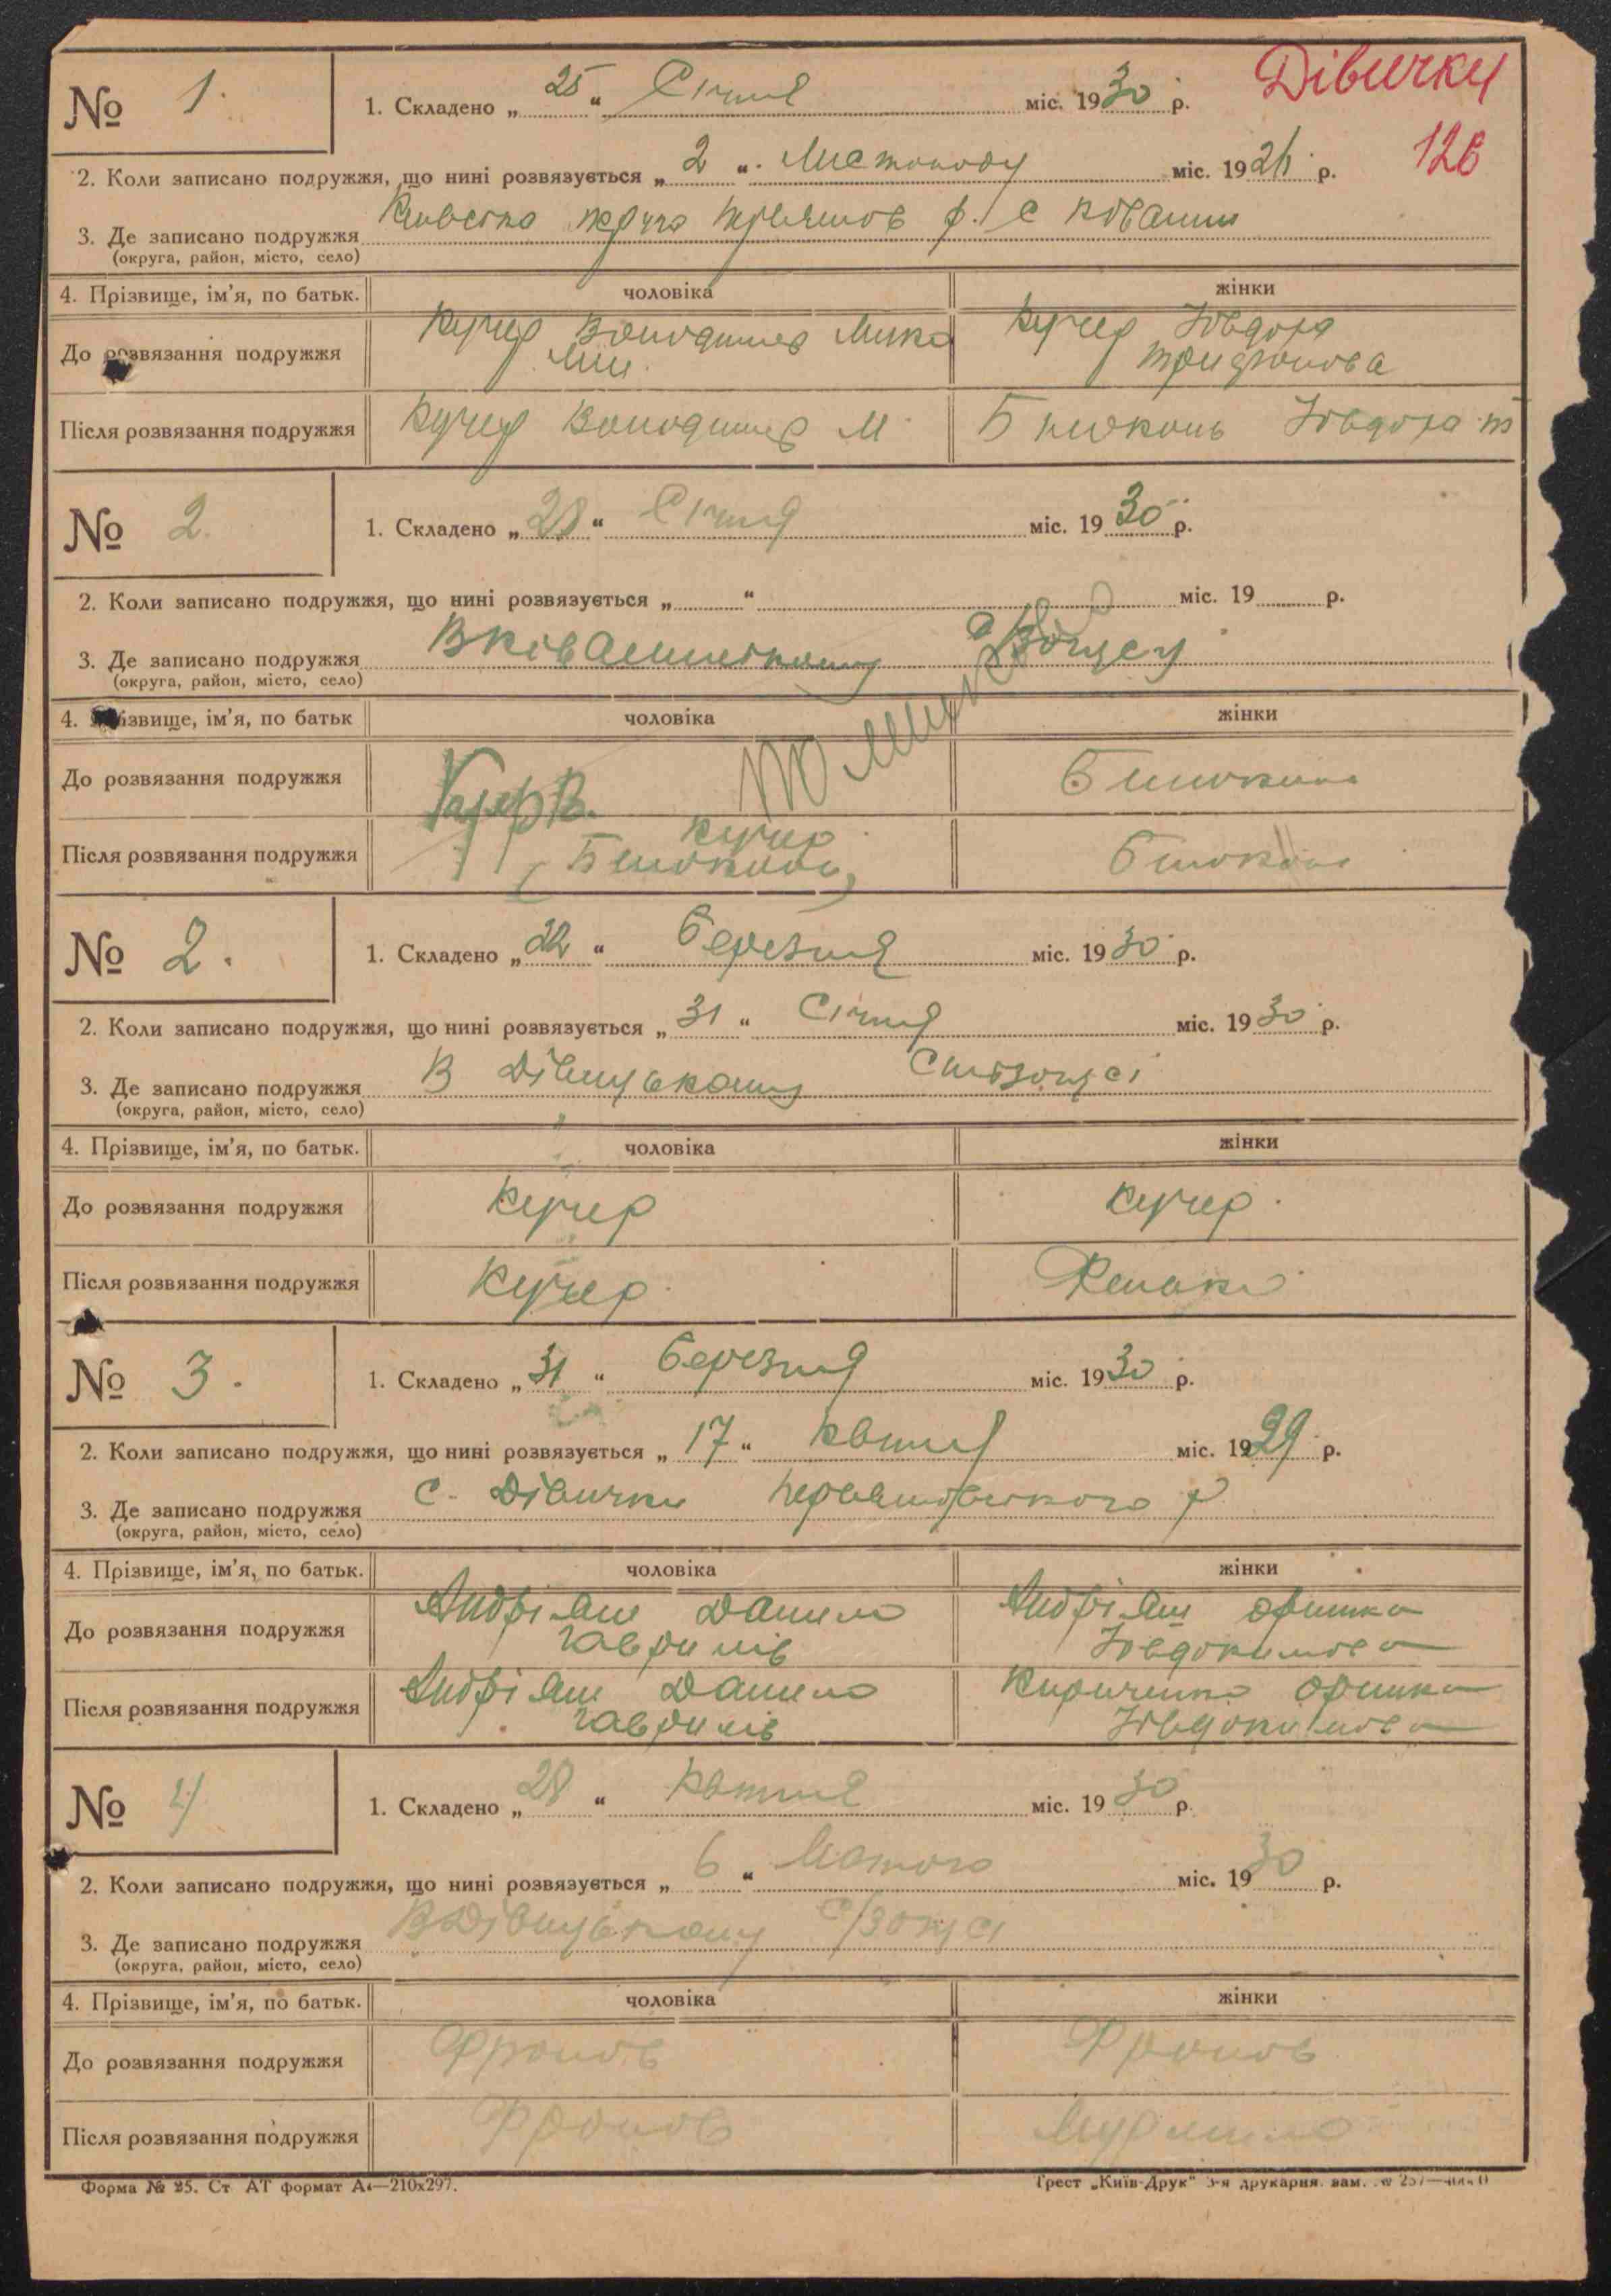 Дівички
126
№ 1.
1. Складено „ 25 “ Січня міс. 1930 р.
2. Коли записано подружжя, що нині розвязується „ 2 “ Листопаду міс. 1926 р.
3. Де записано подружжя р. с
(округа, район, місто, село)
4. Прізвище, ім’я, по батьк. чоловіка жінки
До розвязання подружжя Кучер Володимер КучерЮвдоха
Трихонова
Після розвязання подружжя Кучер Володимер М Ювдоха т
№ 2.
1. Складено „ 28 “ Січня міс. 1930 р.
2. Коли записано подружжя, що нині розвязується „ “ міс. 19 р.
3. Де записано подружжя
(округа, район, місто, село)
4. Прізвище, ім’я, по батьк чоловіка жінки
До розвязання подружжя Кучер В.
Після розвязання подружжя Кучер
№ 2.
1. Складено „ 22 “ березня міс. 1930 р.
2. Коли записано подружжя, що нині розвязується „ 31 “ Січня міс. 1930 р.
3. Де записано подружжя В Дівицькому
(округа, район, місто, село)
4. Прізвище, ім’я, по батьк. чоловіка жінки
До розвязання подружжя Кучер Кучер
Після розвязання подружжя Кучер
№ 3.
1. Складено „ 31 “ березня міс. 1930 р.
2. Коли записано подружжя, що нині розвязується „ 17 “ квітня міс. 1929 р.
3. Де записано подружжя с. Дівички р
(округа, район, місто, село)
4. Прізвище, ім’я, по батьк. чоловіка жінки
До розвязання подружжя Андріяш Данило Андріяш оришка
гаврилів Ювдокимова
Після розвязання подружжя Андріяш Данило Кириченко оришка
гаврилів Ювдокимова
№ 4
1. Складено „ 28 “ квітня міс. 1930 р.
2. Коли записано подружжя, що нині розвязується „ 6 “ Лютого міс. 1930 р.
3. Де записано подружжя В Дівицькому с/загсі
(округа, район, місто, село)
4. Прізвище, ім’я, по батьк. чоловіка жінки
До розвязання подружжя Фролов Фролов
Після розвязання подружжя Фролов
Форма № 25. Ст АТ формат А4—210x297.
Трест „Київ-Друк“ 3-я друкарня. зам.